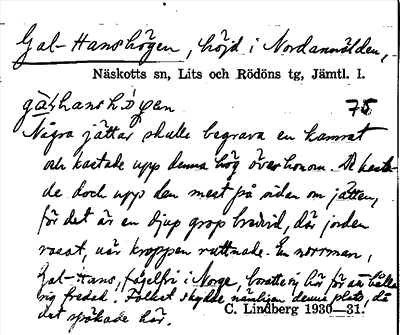 Gal-Hanshögen, höjd i Nordannälden,
Näskotts sn, Lits och Rödöns tg, Jämtl. l.
gàḷhanshö́gen 75
Några jättar skulle begrava en kamrat
och kastade upp denna hög över honom. De kasta-
de dock upp den mest på sidan om jätten,
för det är en djup grop bredvid, där jorden
rasat, när kroppen ruttnade. En norrman,
Gal-Hans, fågelfri i Norge, bosatte sig här för att hålla
sig fredad. Folket skydde nämligen denna plats, då
det spökade här.
C. Lindberg 1930—31.